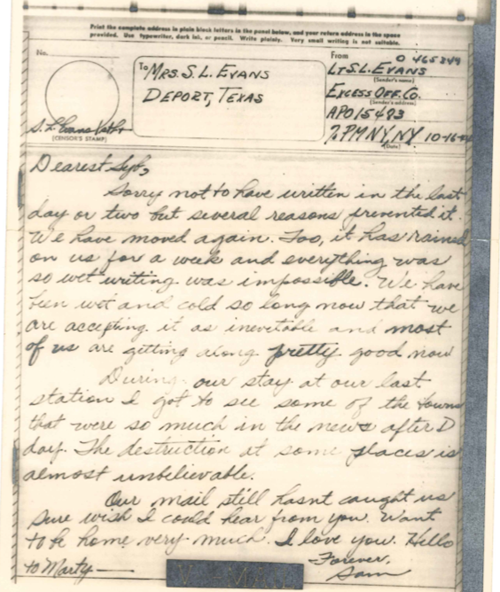 Print the complete address in plain block letters in the panel below, and your return address in the space
provided. Use typewriter, dark ink, or pencil. Write plainly. Very small writing is not suitable.
No.
To
MRS. S. L. EVANS
DEPORT, TEXAS
(CENSOR'S STAMP)
From
LT S. L. EVANS
(Sender's name)
EXCESS OFF. CO.
(Sender's address)
APO 15493
% PM NY, NY 10-16-
(Date)
Dearest Syb,
Sorry not to have written in the last
day or two but several reasons prevented it.
We have moved again. Too, it has rained
on us for a week and everything was
so wet writing was impossible. We have
been wet and cold so long now that we
are accepting it as inevitable and most
of us are getting along pretty good now
During our stay at our last
station I got to see some of the towns
that were so much in the news after D
day. The destruction at some places is
almost unbelievable.
Our mail still hasnt caught us
Sure wish I could hear from you. Want
to be home very much. I love you. Hello
to Marty
Forever,
Sam